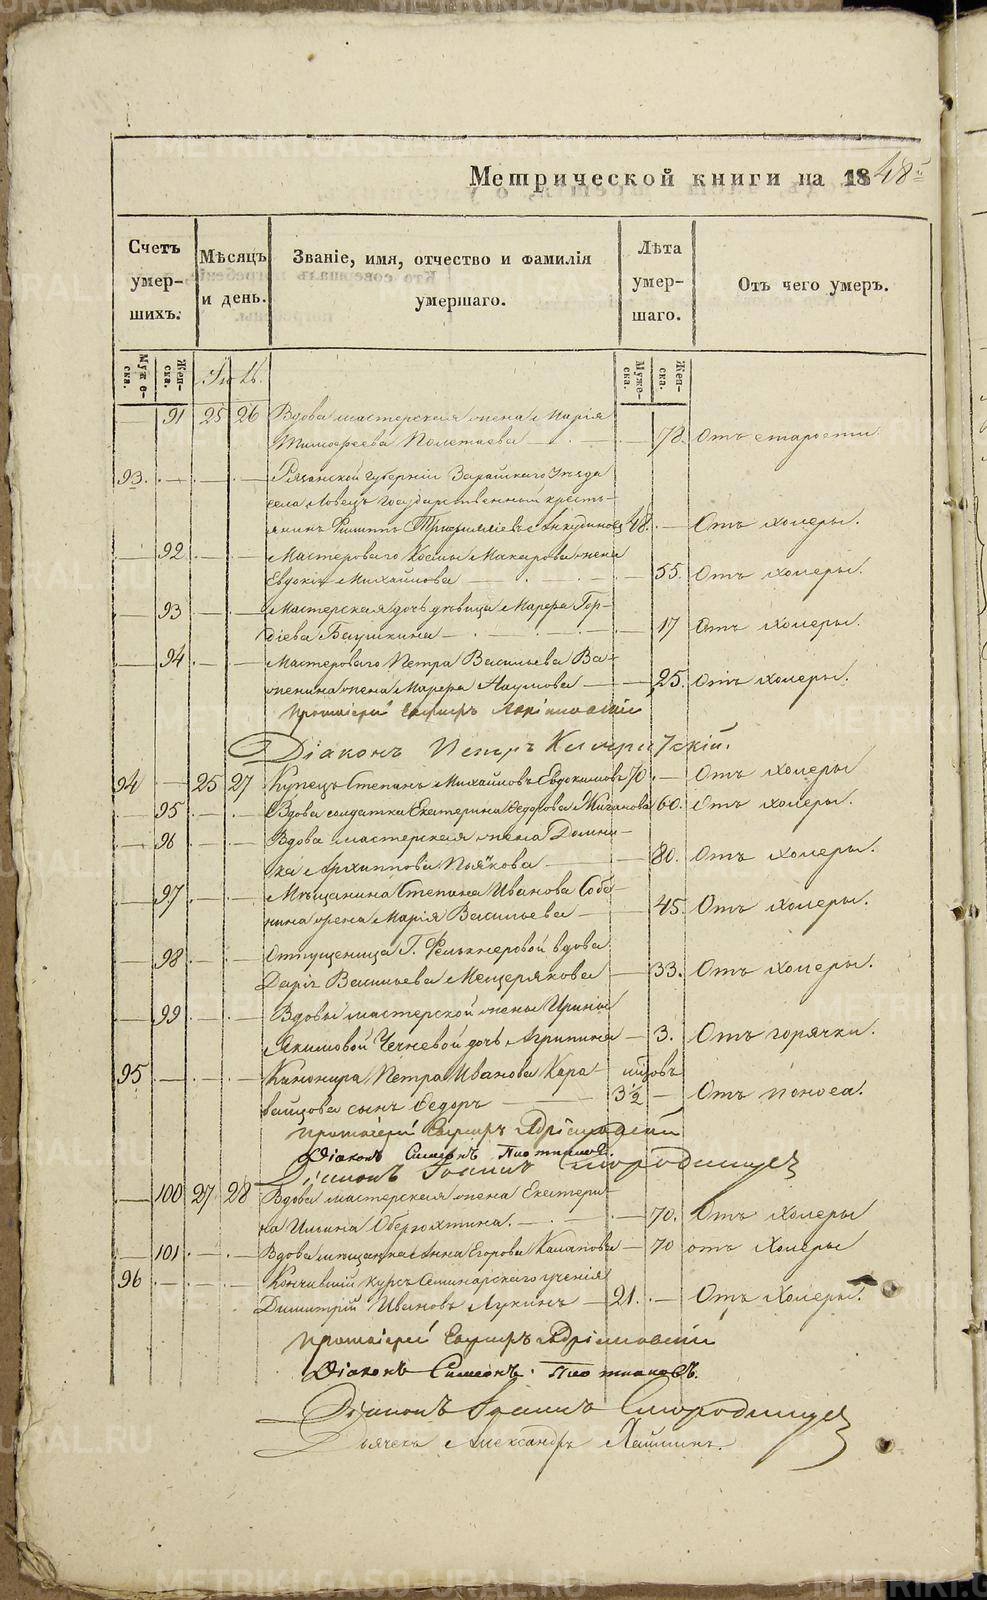 Метрической книги на 1848й
Счетъ умер-шихъ.
Мѣсяцъ и день.
Званіе, имя, отчество и фамилія умершаго.
Лѣта умер-шаго.
Отъ чего умеръ.
Муже-ска. Жен-ска. Іюль. Муже-ска. Жен-ска.
— 91 25 26 Вдова мастерская жена Марія
Тимофеева Полетаева — 78. Отъ старости
93. Рязанской Губерніи Зарайскаго Уѣзда
села Ловецъ Государственный кресть-
янинъ Филиппъ 48. — Отъ холеры.
— 92 Мастероваго Космы Макарова жена
Евдокія Михайлова — 55. Отъ холеры.
— 93 Мастерская дочь дѣвица Марѳа Гор-
діева Баушкина — 17 Отъ холеры.
— 94 Мастероваго Петра Васильева Ва-
женина жена Марѳа Наумова — 25. Отъ холеры.
Протоіерей
Діаконъ Петръ
94 — 25 27 Купецъ Степанъ Михайловъ Евдокимовъ 70. — Отъ холеры
— 95 Вдова солдатка Екатерина Ѳедорова Жиганова 60. Отъ холеры.
— 96 Вдова мастерская жена Домни-
ка Архиппова Пьякова — 80. Отъ холеры.
— 97 Мѣщанина Степана Иванова Соба-
кина жена Марія Васильева — 45. Отъ холеры.
— 98 Отпущеница Г. Фелькнеровой вдова
Дарія Васильева Мещерякова — 33. Отъ холеры.
— 99 Вдовы мастерской жены Ирины
Якимовой дочь Агрипина — 3. Отъ горячки.
95 — Канонира Петра Иванова Кара-
ваицова сынъ Ѳедоръ 3½ — Отъ поноса.
Протоіерей
Діаконъ Симеонъ Плотниковъ.
Діаконъ Іоаннъ Смородинцев
— 100 27 28 Вдова мастерская жена Екатери-
на Ильина — 70. Отъ холеры
— 101 Вдова мѣщанка Анна Егорова — 70 отъ холеры
96 — Кончившій курсъ Семинарскаго ученія
Димитрій Ивановъ Лукинъ — 21. — Отъ холеры.
Протоіерей
Діаконъ Симеонъ Плотниковъ.
Діаконъ Іоаннъ Смородинцев
Дьячекъ Александръ
METRIKI.GASO-URAL.RU